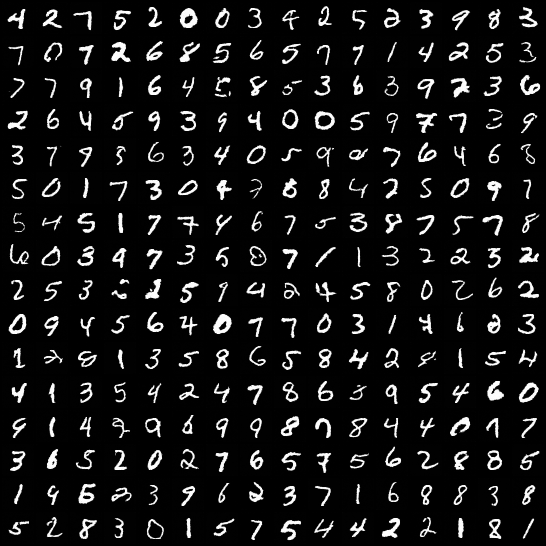 4 2 7 5 2 0 0 3 9 2 5 2 3 9 8 3
7 0 7 2 6 8 5 6 5 7 7 1 4 2 5 3
7 7 9 1 6 4 5 8 5 3 6 3 9 2 3 6
2 6 4 5 9 3 9 4 0 0 5 9 7 7 3 9
3 7 9 3 6 3 4 0 5 9 2 7 6 4 6 8
5 0 1 7 3 0 4 7 8 8 4 2 5 0 9 7
5 4 5 1 7 7 4 6 7 5 3 8 7 5 7 8
6 0 3 9 7 3 5 0 7 1 1 3 2 2 3 2
2 5 3 2 2 5 9 4 2 4 5 8 0 2 6 2
0 9 4 5 6 4 0 7 7 0 3 1 4 6 2 3
1 2 8 1 3 5 8 6 5 8 4 2 8 1 5 4
4 1 3 5 4 2 4 7 8 6 3 9 5 4 6 0
9 1 4 2 9 6 9 9 8 7 8 4 4 0 7 7
3 6 5 2 0 2 7 6 5 7 5 6 2 8 8 5
1 9 5 2 3 9 6 2 3 7 1 6 8 8 3 8
5 2 8 3 0 1 5 7 5 4 4 2 2 1 8 1